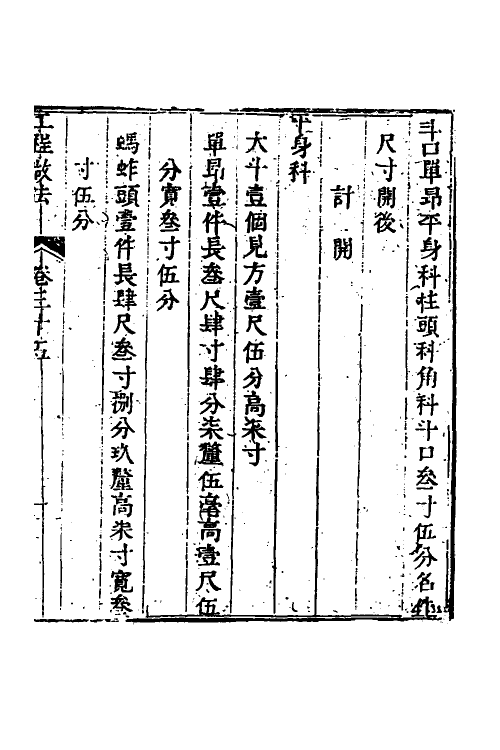 斗口單昂平身科柱頭科角科斗口叁寸伍分名件
尺寸開後
計開
平身科
大斗壹個見方壹尺伍分高柒寸
單昂壹件長叁尺肆寸肆分柒釐伍毫高壹尺伍
分寬叁寸伍分
螞蚱頭壹件長肆尺叁寸捌分玖釐高柒寸寬叁
寸伍分
工程做法
卷三十五